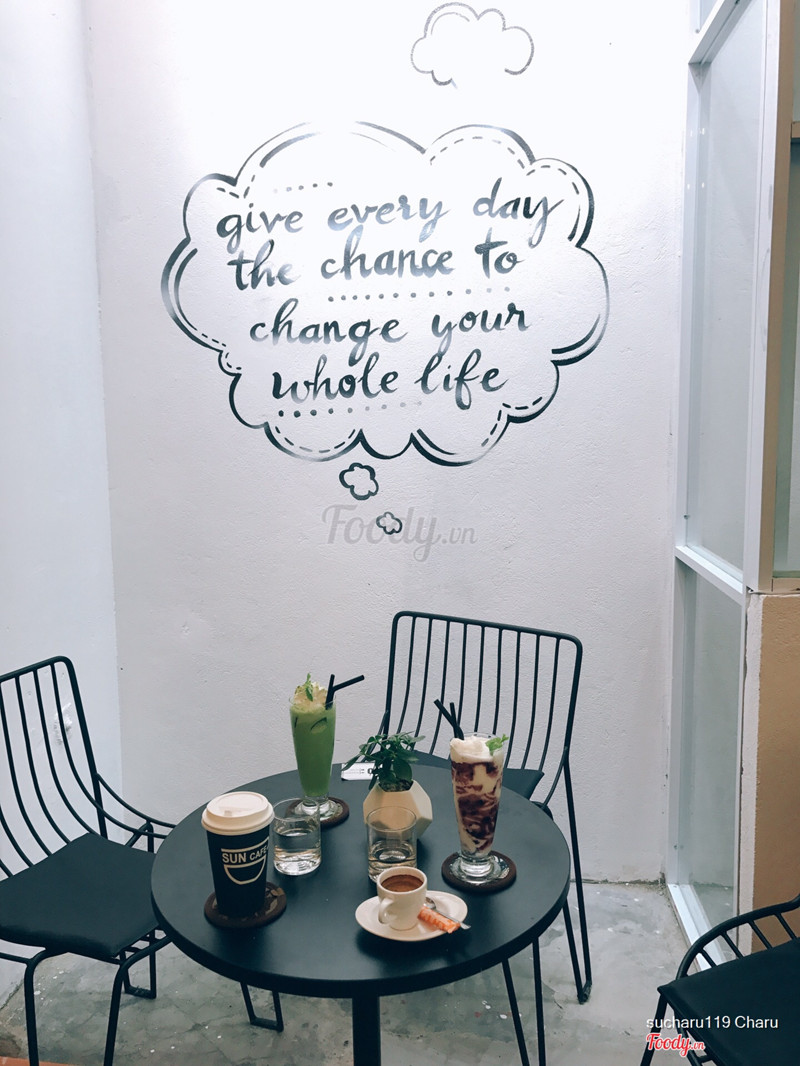 give every day
the chance to
change your
whole life
Foody.vn
SUN CAFE
sucharu119 Charu
Foody.vn